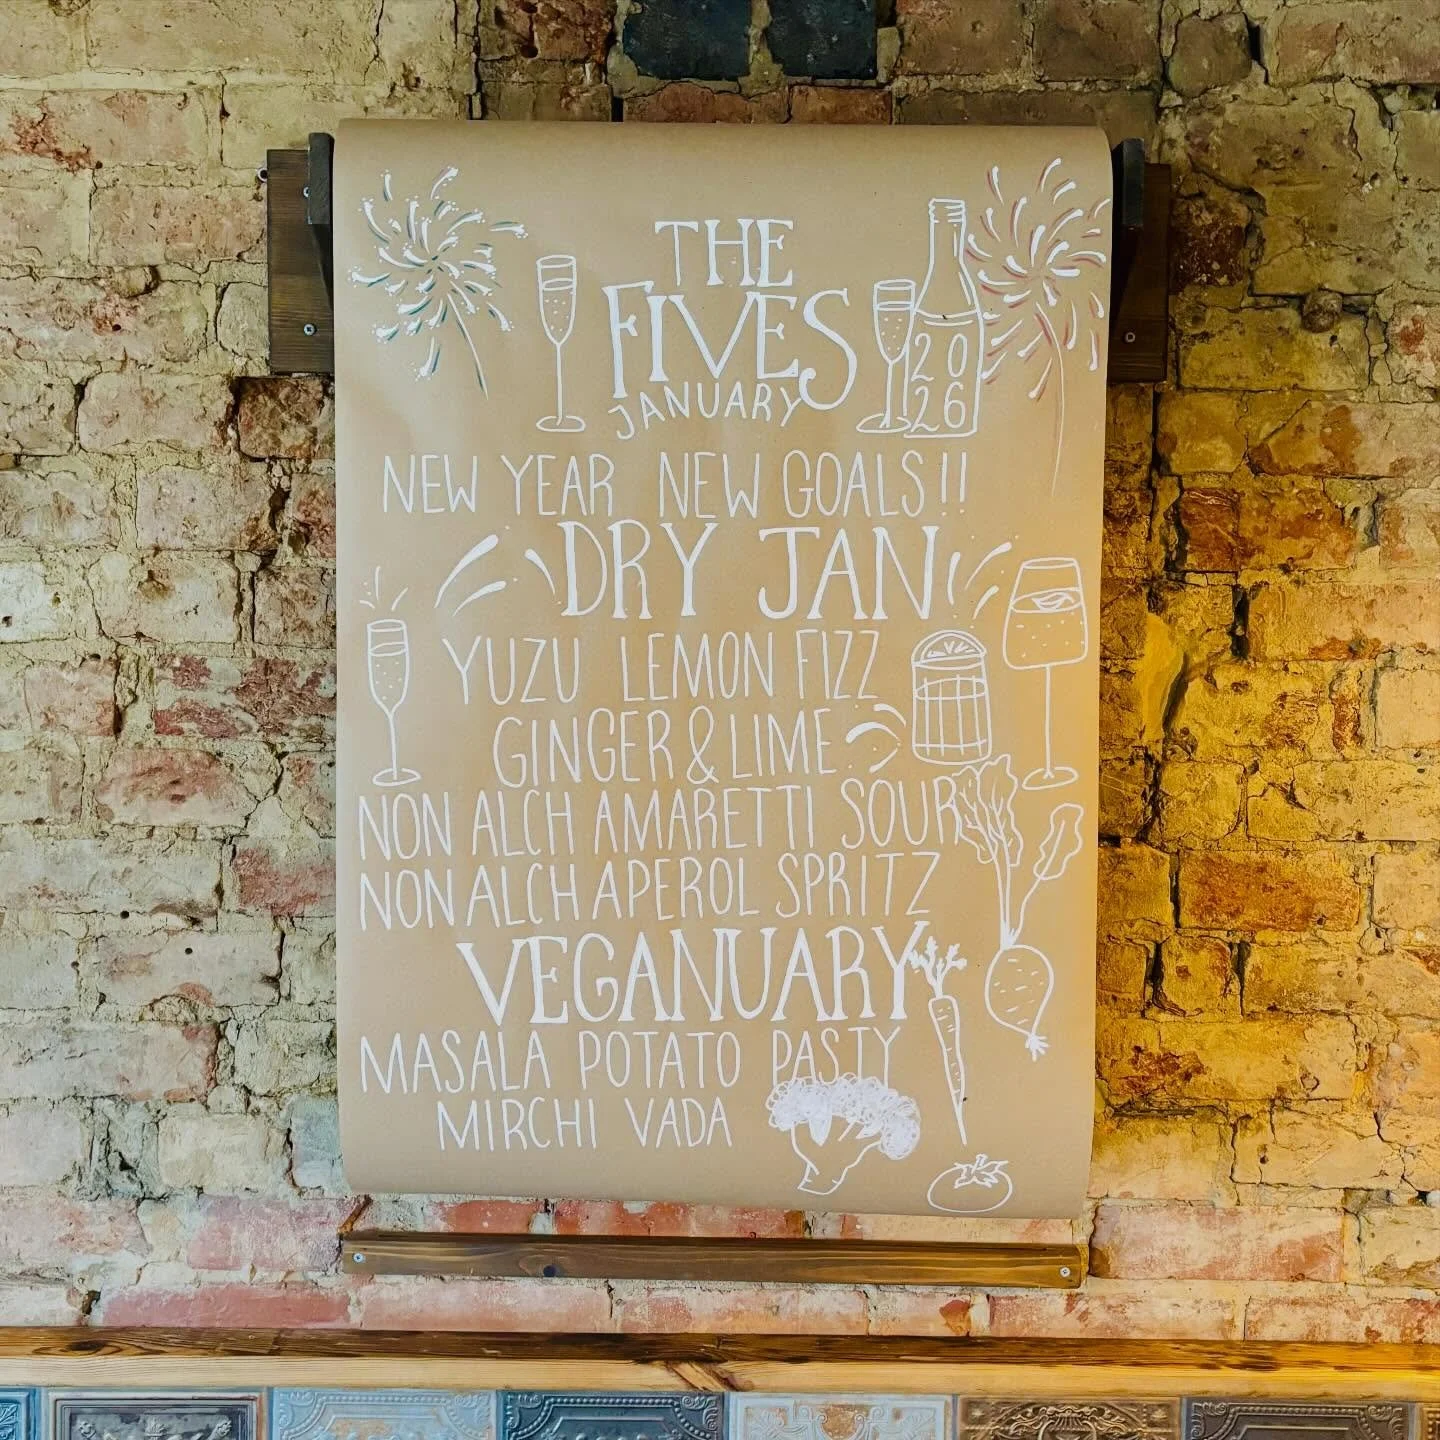 THE
FIVES
JANUARY
20
26
NEW YEAR NEW GOALS!!
DRY JAN
YUZU LEMON FIZZ
GINGER & LIME
NON ALCH AMARETTI SOUR
NON ALCH APEROL SPRITZ
VEGANUARY
MASALA POTATO PASTY
MIRCHI VADA